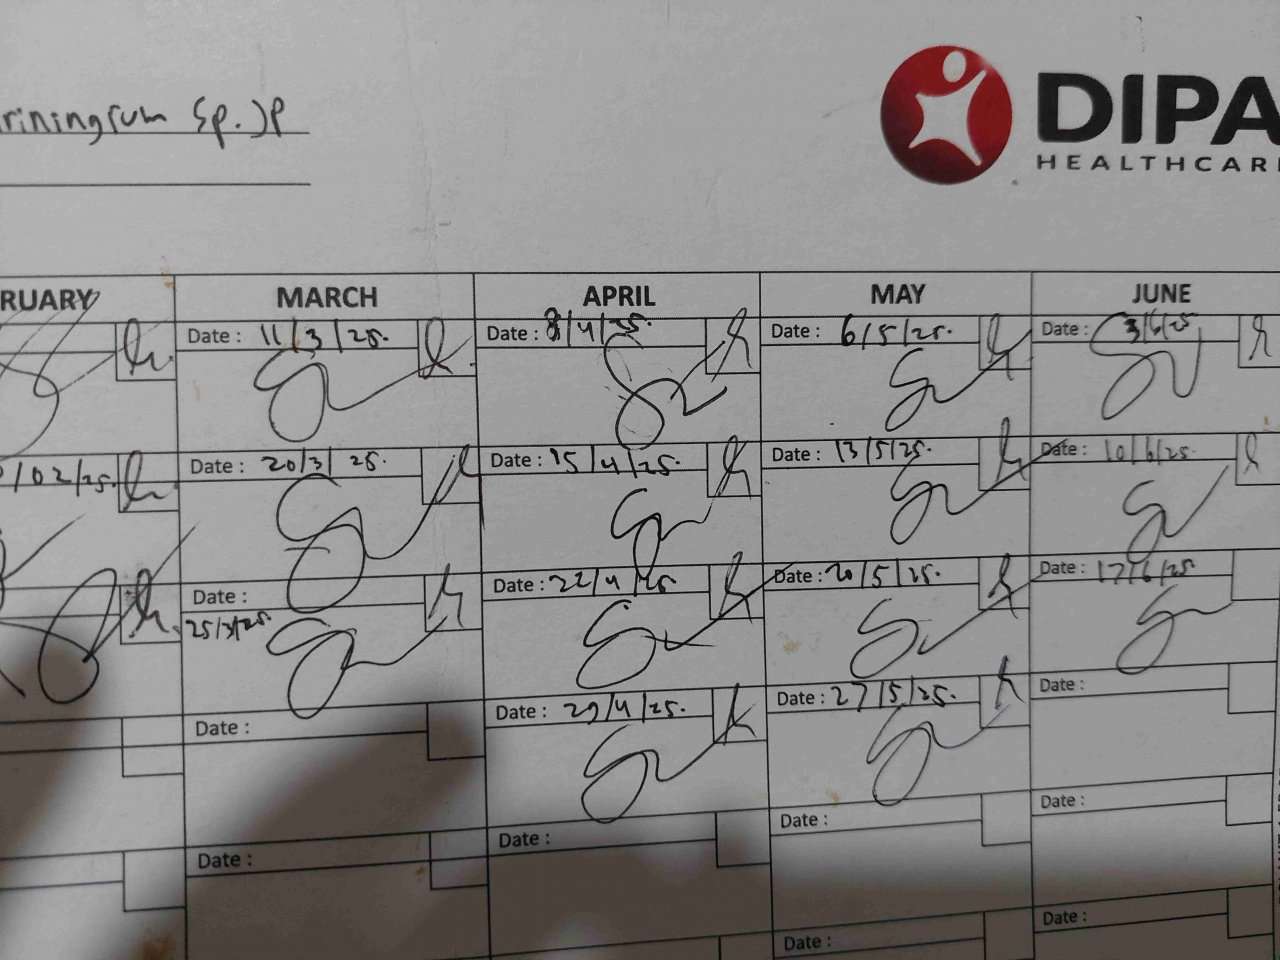 riningrum Sp.JP
DIPA
HEALTHCAR
RUARY MARCH APRIL MAY JUNE
Date : 11/3/25. Date : 8/4/25. Date : 6/5/25. Date : 3/6/25
/02/25. Date : 20/3/25. Date : 15/4/25. Date : 13/5/25. Date : 10/6/25.
Date : 25/3/25. Date : 22/4/25 Date : 20/5/25. Date : 17/6/25
Date : Date : 29/4/25. Date : 27/5/25. Date :
Date : Date : Date : Date :
Date : Date :